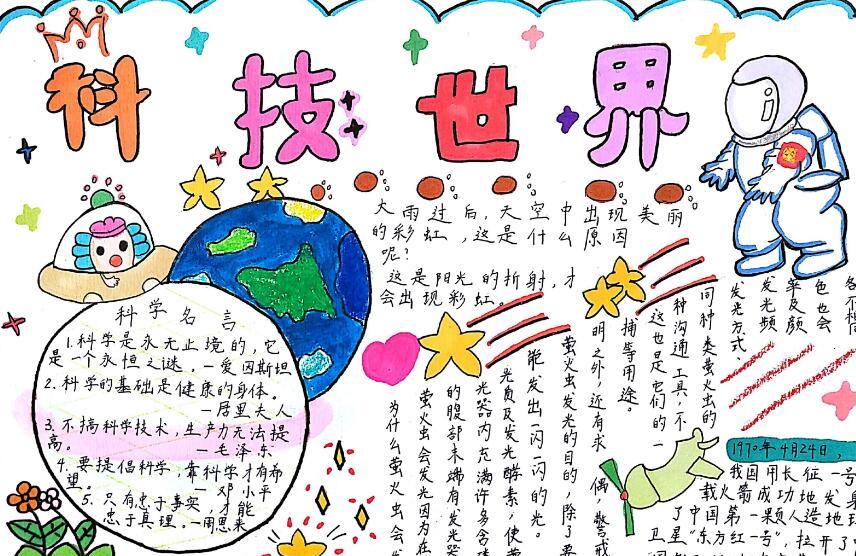 科技世界
大雨过后，天空中出现美丽
的彩虹，这是什么原因
呢？
这是阳光的折射，才
会出现彩虹。
科学名言
1.科学是永无止境的，它
是一个永恒之谜。—爱因斯坦
2.科学的基础是健康的身体。
—居里夫人
3.不搞科学技术，生产力无法提
高。—毛泽东
4.要提倡科学，靠科学才有希
望。—邓小平
5.只有忠于事实，才能
忠于真理。—周恩来
为什么萤火虫会发
萤火虫会发光因为在
的腹部末端有发光器
光器内充满许多含磷
光质及发光酵素，使萤
能发出一闪一闪的光。
萤火虫发光的目的，除了要
明之外，还有求偶，警戒
捕等用途。
这也是它们的一
种沟通工具，不
同种类萤火虫的
发光方式、
发光频
率及颜
色也会
各不相
1970年4月24日，
我国用长征一号
载火箭成功地发
了中国第一颗人造地球
卫星"东方红一号"，拉开了